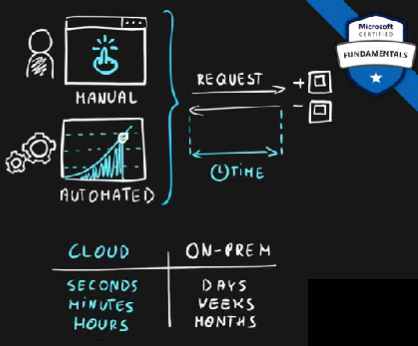 Microsoft
CERTIFIED
FUNDAMENTALS
MANUAL
REQUEST
+
-
TIME
AUTOMATED
CLOUD ON-PREM
SECONDS DAYS
MINUTES WEEKS
HOURS MONTHS